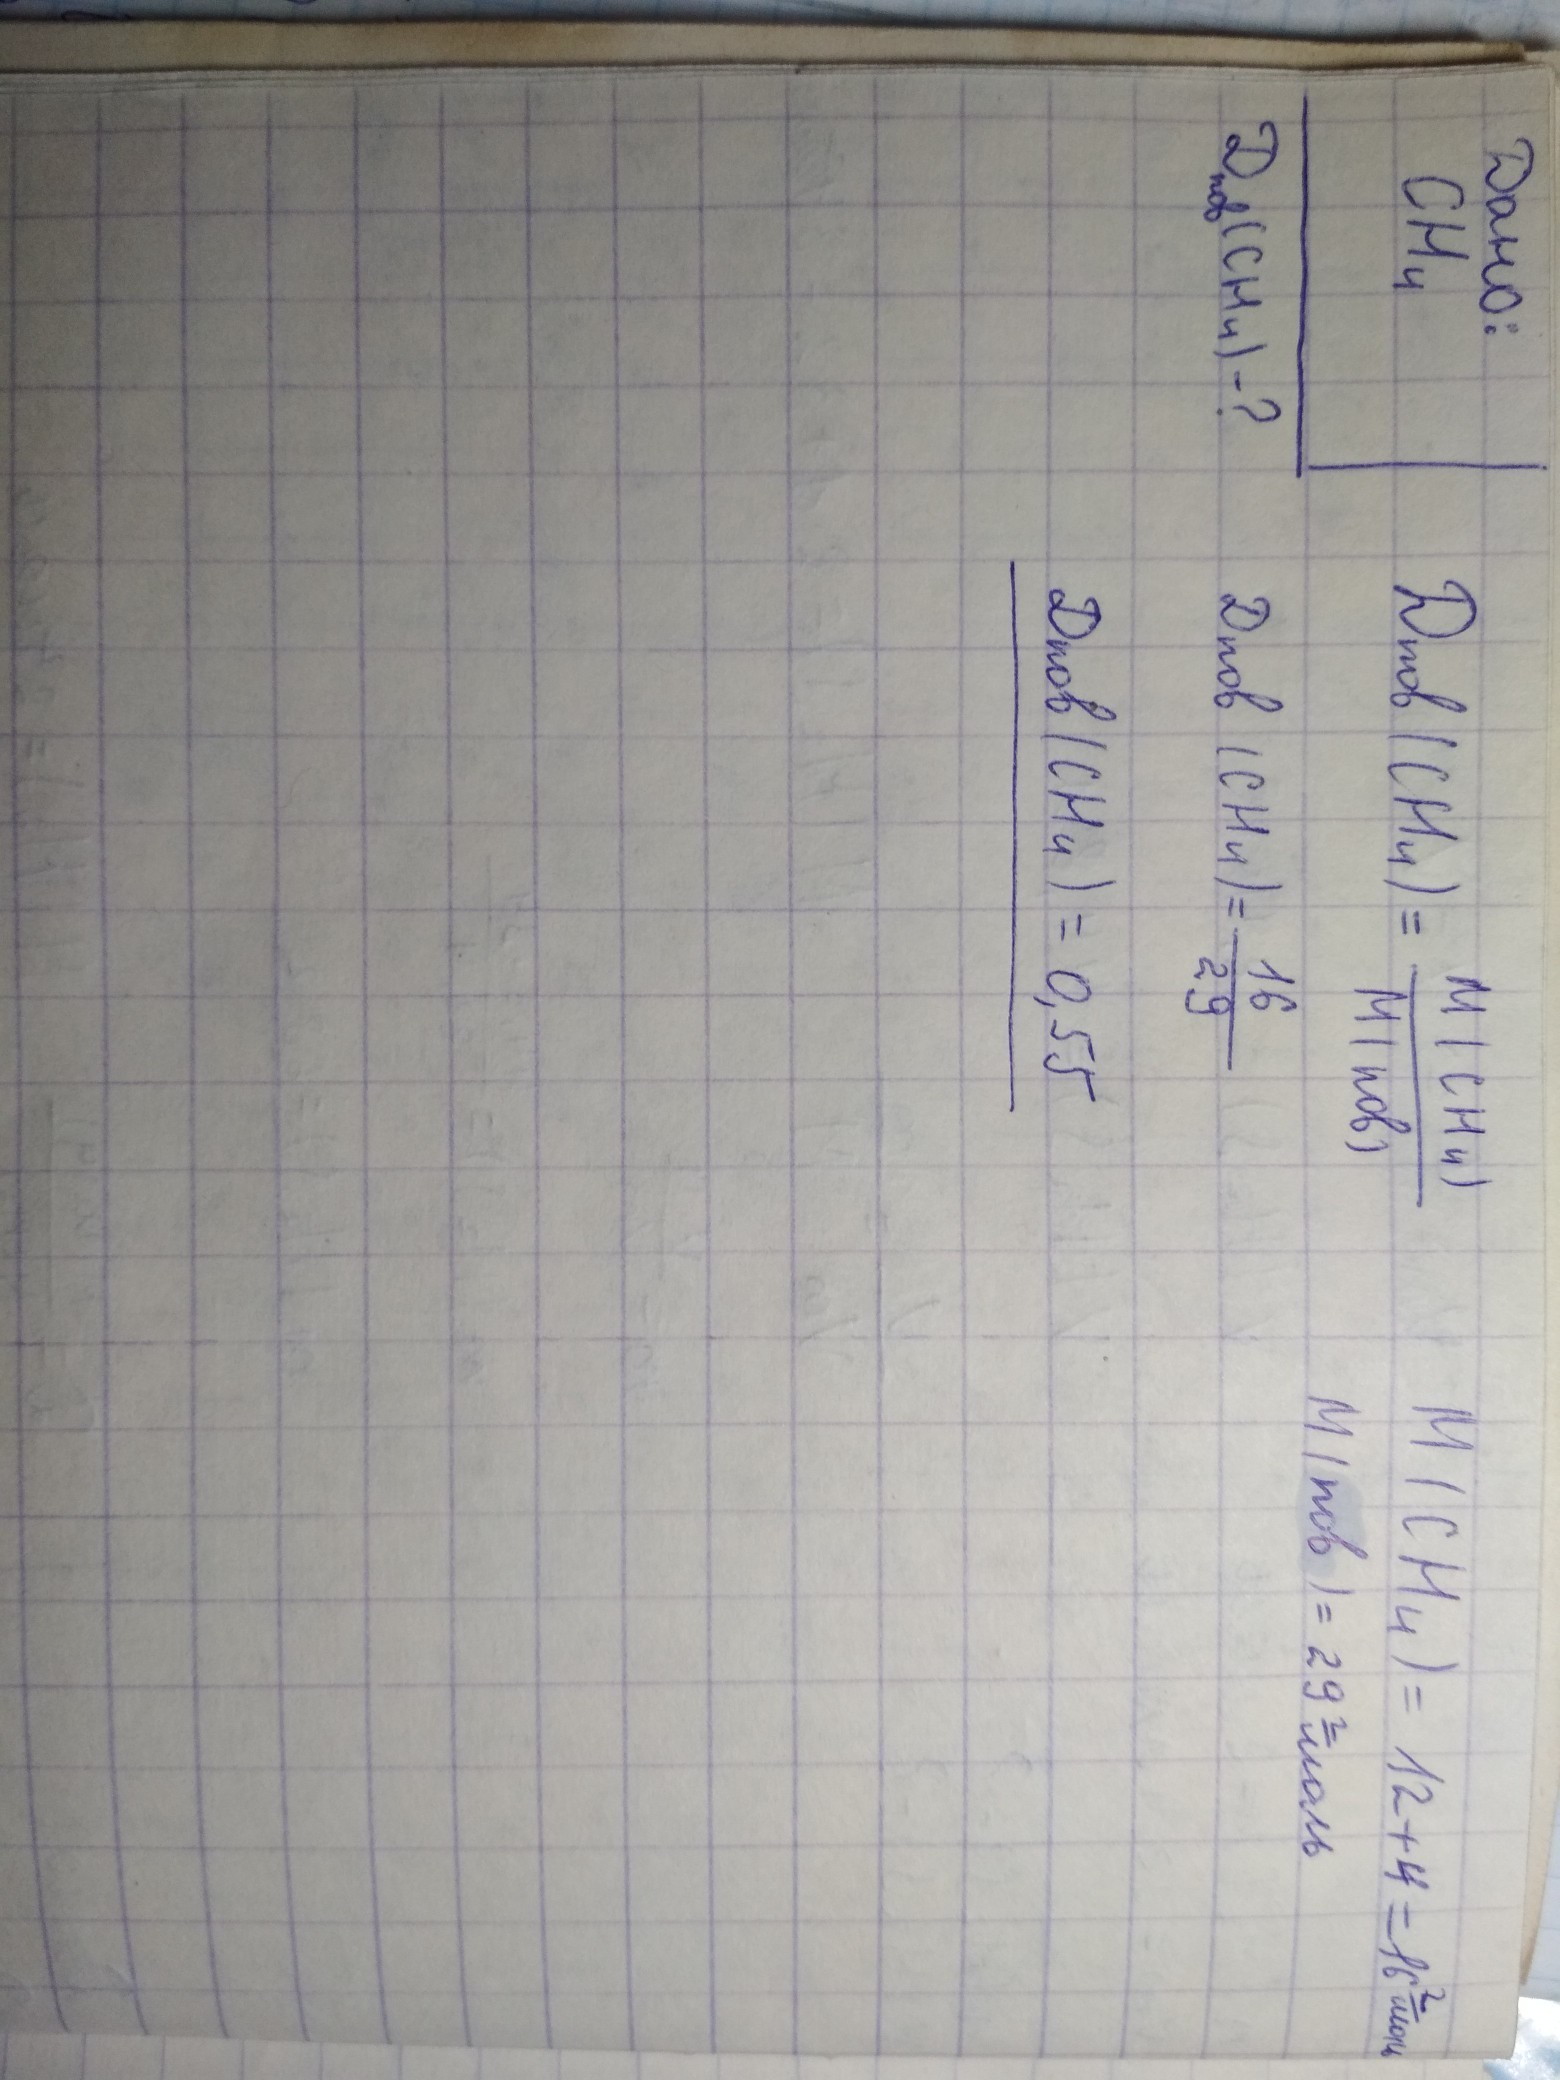 Дано:
CH₄
Dпов(CH₄) - ?
Dпов(CH₄) = M(CH₄) / M(пов)
Dпов (CH₄) = 16 / 29
Dпов(CH₄) = 0,55
M(CH₄) = 12+4 = 16 г/моль
M(пов) = 29 г/моль